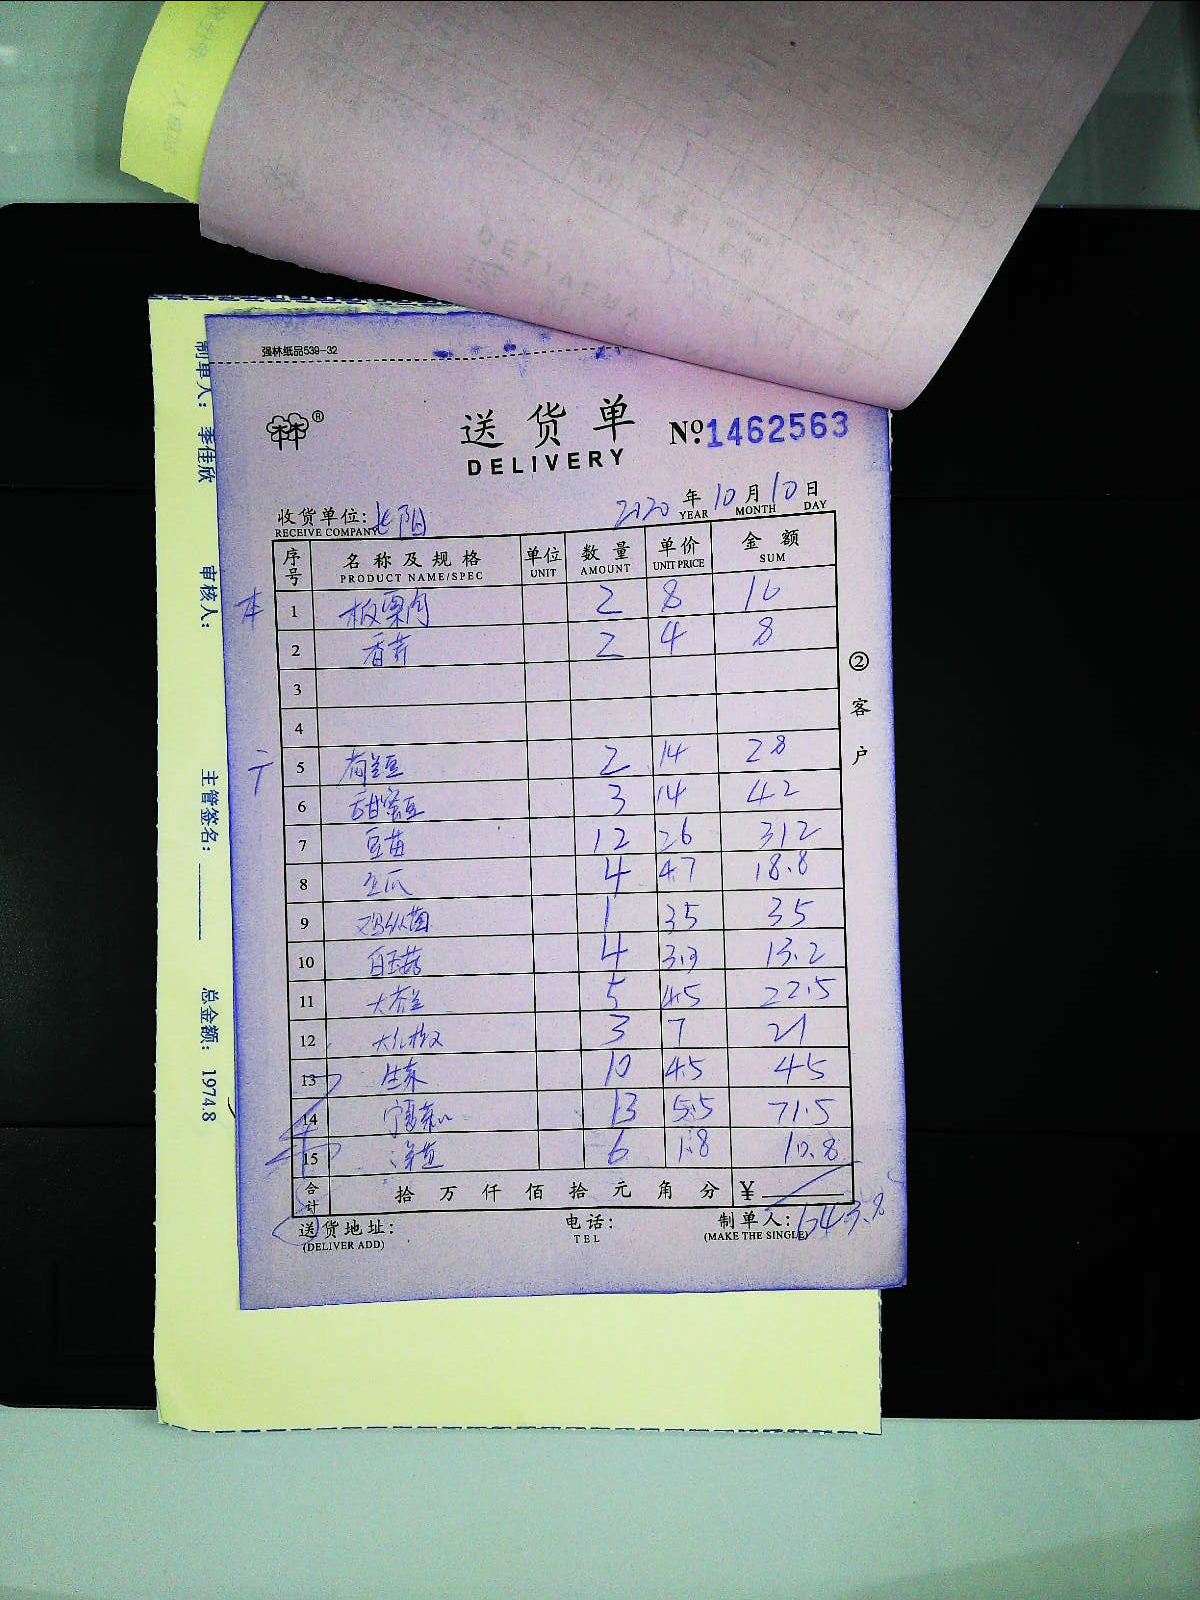 强林纸品539-32
®
送货单 №1462563
DELIVERY
收货单位: 2020年10月10日
RECEIVE COMPANY YEAR MONTH DAY
序号 名称及规格 单位 数量 单价 金额
PRODUCT NAME/SPEC UNIT AMOUNT UNIT PRICE SUM
本 1 板栗肉 2 8 16
2 香芹 2 4 8
3
4
5 荷兰豆 2 14 28
6 甜蜜豆 3 14 42
7 豆苗 12 26 312
8 4 4.7 18.8
9 鸡纵菌 1 35 35
10 白玉菇 4 3.3 13.2
11 大芥兰 5 4.5 22.5
12 3 7 21
13 生菜 10 4.5 45
14 13 5.5 71.5
15 6 1.8 10.8
合计 拾万仟佰拾元角分 ¥
643.8
送货地址: 电话: 制单人:
(DELIVER ADD) TEL (MAKE THE SINGLE)
②客户
制单人: 季佳欣 审核人: 主管签名: 总金额: 1974.8